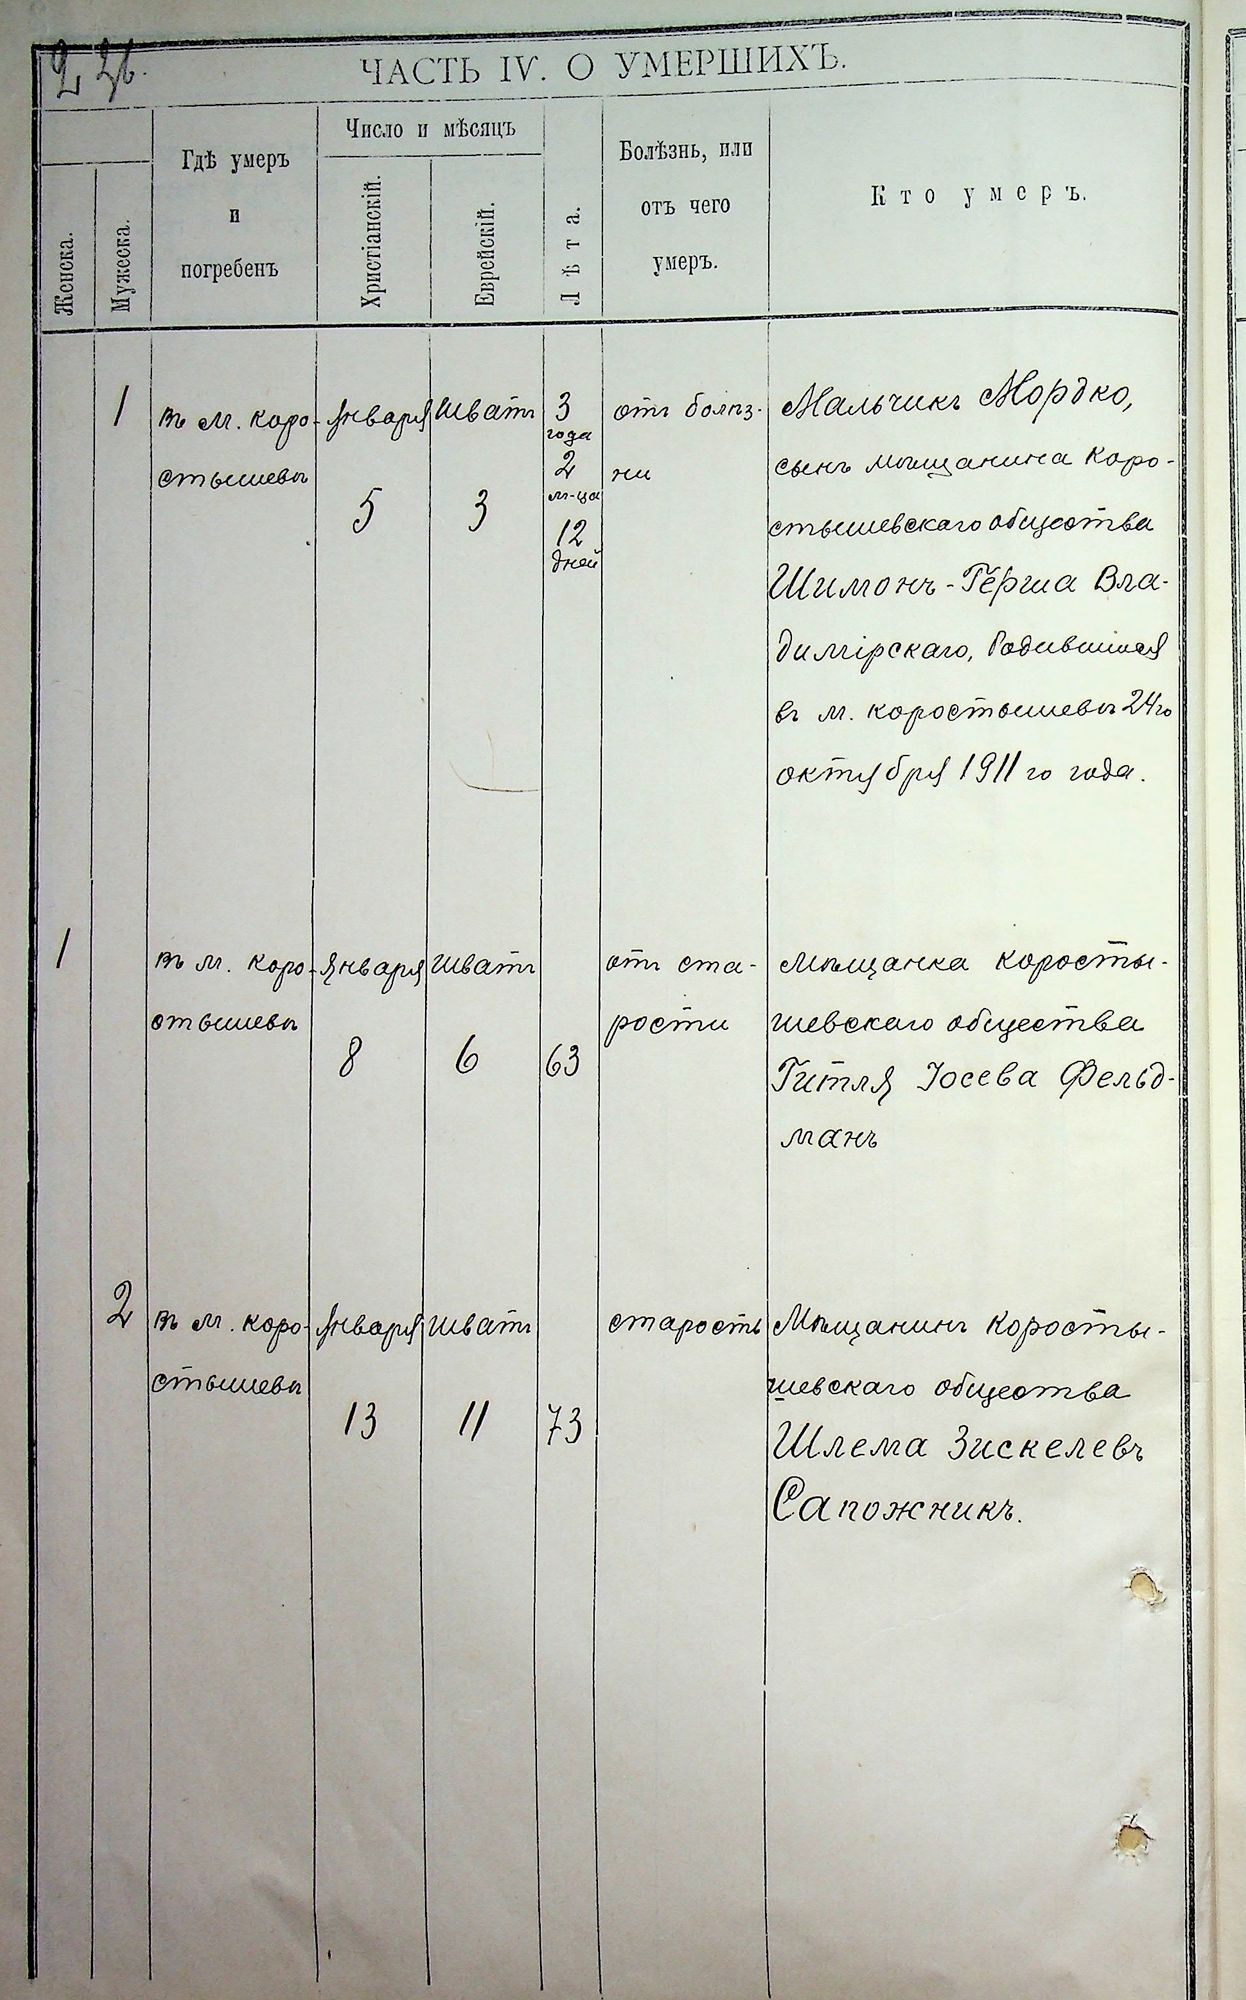 2 2б.
ЧАСТЬ IV. О УМЕРШИХЪ.
Женска.
Мужеска.
Гдѣ умеръ
и
погребенъ
Число и мѣсяцъ
Христіанскій.
Еврейскій.
Лѣта.
Болѣзнь, или
отъ чего
умеръ.
Кто умеръ.
1
въ м. Коро-
стышевѣ
Января
5
Шватъ
3
3
года
2
м-ца
12
дней
отъ болѣз-
ни
Мальчикъ Мордко,
сынъ мѣщанина Коро-
стышевскаго общества
Шимонъ-Герша Вла-
димірскаго, Родившійся
въ м. Коростышевѣ 24го
октября 1911го года.
1
въ м. Коро-
стышевѣ
Января
8
Шватъ
6
63
отъ ста-
рости
Мѣщанка Коросты-
шевскаго общества
Гитля Іосева Фельд-
манъ
2
въ м. Коро-
стышевѣ
Января
13
Шватъ
11
73
старость
Мѣщанинъ Коросты-
шевскаго общества
Шлема Зискелевъ
Сапожникъ.